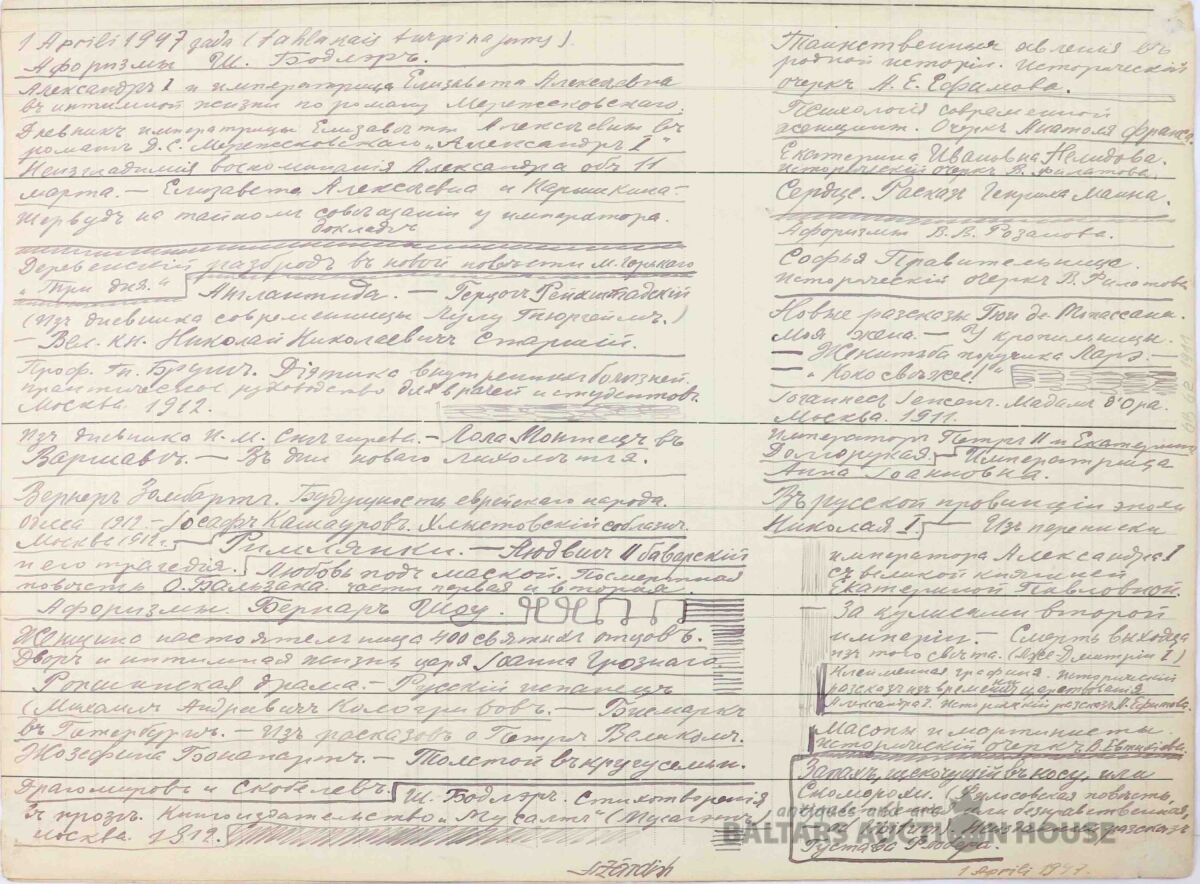 1 Aprīlī 1947 года (tahlakais turpinajums).
Афоризмы Ш. Бодлэръ.
Александръ I и императрица Елизавета Алексѣевна
въ интимной жизни по роману Мережковскаго.
Дневникъ императрицы Елизаветы Алексѣевны въ
романѣ Д.С. Мережсковскаго „Александръ I"
Неизгладимыя воспоминанія Александра объ 11
марта. — Елизавета Алексѣевна и Нарышкина —
Шервудъ на тайномъ совѣщаніи у императора.
докладъ
Деревенскій разбродъ въ новой повѣсти М. Горькаго
„Три дня." Атлантида. — Герцогъ Рейхштадскій
(Изъ дневника современницы Лулу Тюргеймъ.)
— Вел. кн. Николай Николаевичъ Старшій.
Проф. Гн. Діэтика внутреннихъ болѣзней.
практическое руководство для врачей и студентовъ.
Москва. 1912.
Изъ дневника И. М. Снѣгирева. — Лола Монтецъ въ
Варшавѣ. — Въ дни новаго лихолѣтья.
Вернеръ Зомбартъ. Будущность еврейскаго народа.
Одесса 1912. — Іосафъ Кашауровъ. Хлыстовскій соблазнъ.
Москва 1912. Римлянки. — Людвигъ II баварскій
и его трагедія. Любовь подъ маской. Посмертная
повѣсть О. Бальзака. части первая и вторая.
Афоризмы Бернаръ Шоу.
Женщина настоятельница 400 святыхъ отцовъ.
Дворъ и интимная жизнь царя Іоанна Грознаго.
Ропшинская драма. — Русскій испанецъ
(Михаилъ Андреевичъ Кологривовъ. — Бисмаркъ
въ Петербургѣ. — Изъ расказовъ о Петрѣ Великомъ.
Жозефина Бонапартъ. — Толстой въ кругу семьи.
Драгомировъ и Скобелевъ. Ш. Бодлэръ. Стихотворенія
въ прозѣ. Книгоиздательство „Мусагетъ" (Мусагетъ)
Москва. 1912.
Таинственныя явленія въ
родной исторіи. Историческій
очеркъ А. Е. Ефимова.
Психологія современной
женщины. Очеркъ Анатоля Франса.
Екатерина Ивановна Нелидова.
историческій очеркъ В. Филатова.
Сердце. Расказъ Генриха Манна.
Афоризмы В. В. Розанова.
Софья Правительница.
историческій очеркъ В. Филатова
Новые разсказы Гюи де Мопассана.
Моя жена. — У кропильницы.
— Женитьба поручика Ларэ. —
— „Коко свѣжее!"
Іоганнесъ Іенсенъ. Мадамъ д'Ора.
Москва. 1911.
Императоръ Петръ II и Екатерина
Долгорукая. Императрица
Анна Іоанновна.
Въ русской провинціи эпохи
Николая I. — Изъ переписки
императора Александра I
съ великой княгиней
Екатериной Павловной.
За кулисами второй
имперіи. — Смерть выходца
изъ того свѣта. (Лже Дмитрій I)
Клейменная графиня. историческій
разсказъ изъ временъ царствованія
Александра I. историческій разсказъ А. Ефимова.
Масоны и мартинисты
историческій очеркъ
Запахъ, щекочущій въ носу, или
Скоморохи.
разсказъ
Густава Флобера.
Aprīlī 1947.
antiques and art
BALTARS AUCTION HOUSE